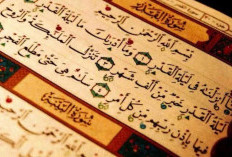 سُورَةُ القَدْرِ
بِسْمِ اللَّهِ الرَّحْمَٰنِ الرَّحِيمِ
فِي لَيْلَةِ الْقَدْرِ ۝ وَمَا أَدْرَىٰكَ مَا لَيْلَةُ
الْقَدْرِ ۝ لَيْلَةُ الْقَدْرِ خَيْرٌ مِّنْ أَلْفِ شَهْرٍ ۝ تَنَزَّلُ الْمَلَٰئِكَةُ وَالرُّوحُ
فِيهَا بِإِذْنِ رَبِّهِم مِّن كُلِّ أَمْرٍ ۝ سَلَٰمٌ هِيَ حَتَّىٰ مَطْلَعِ الْفَجْرِ
سُورَةُ البَيِّنَةِ